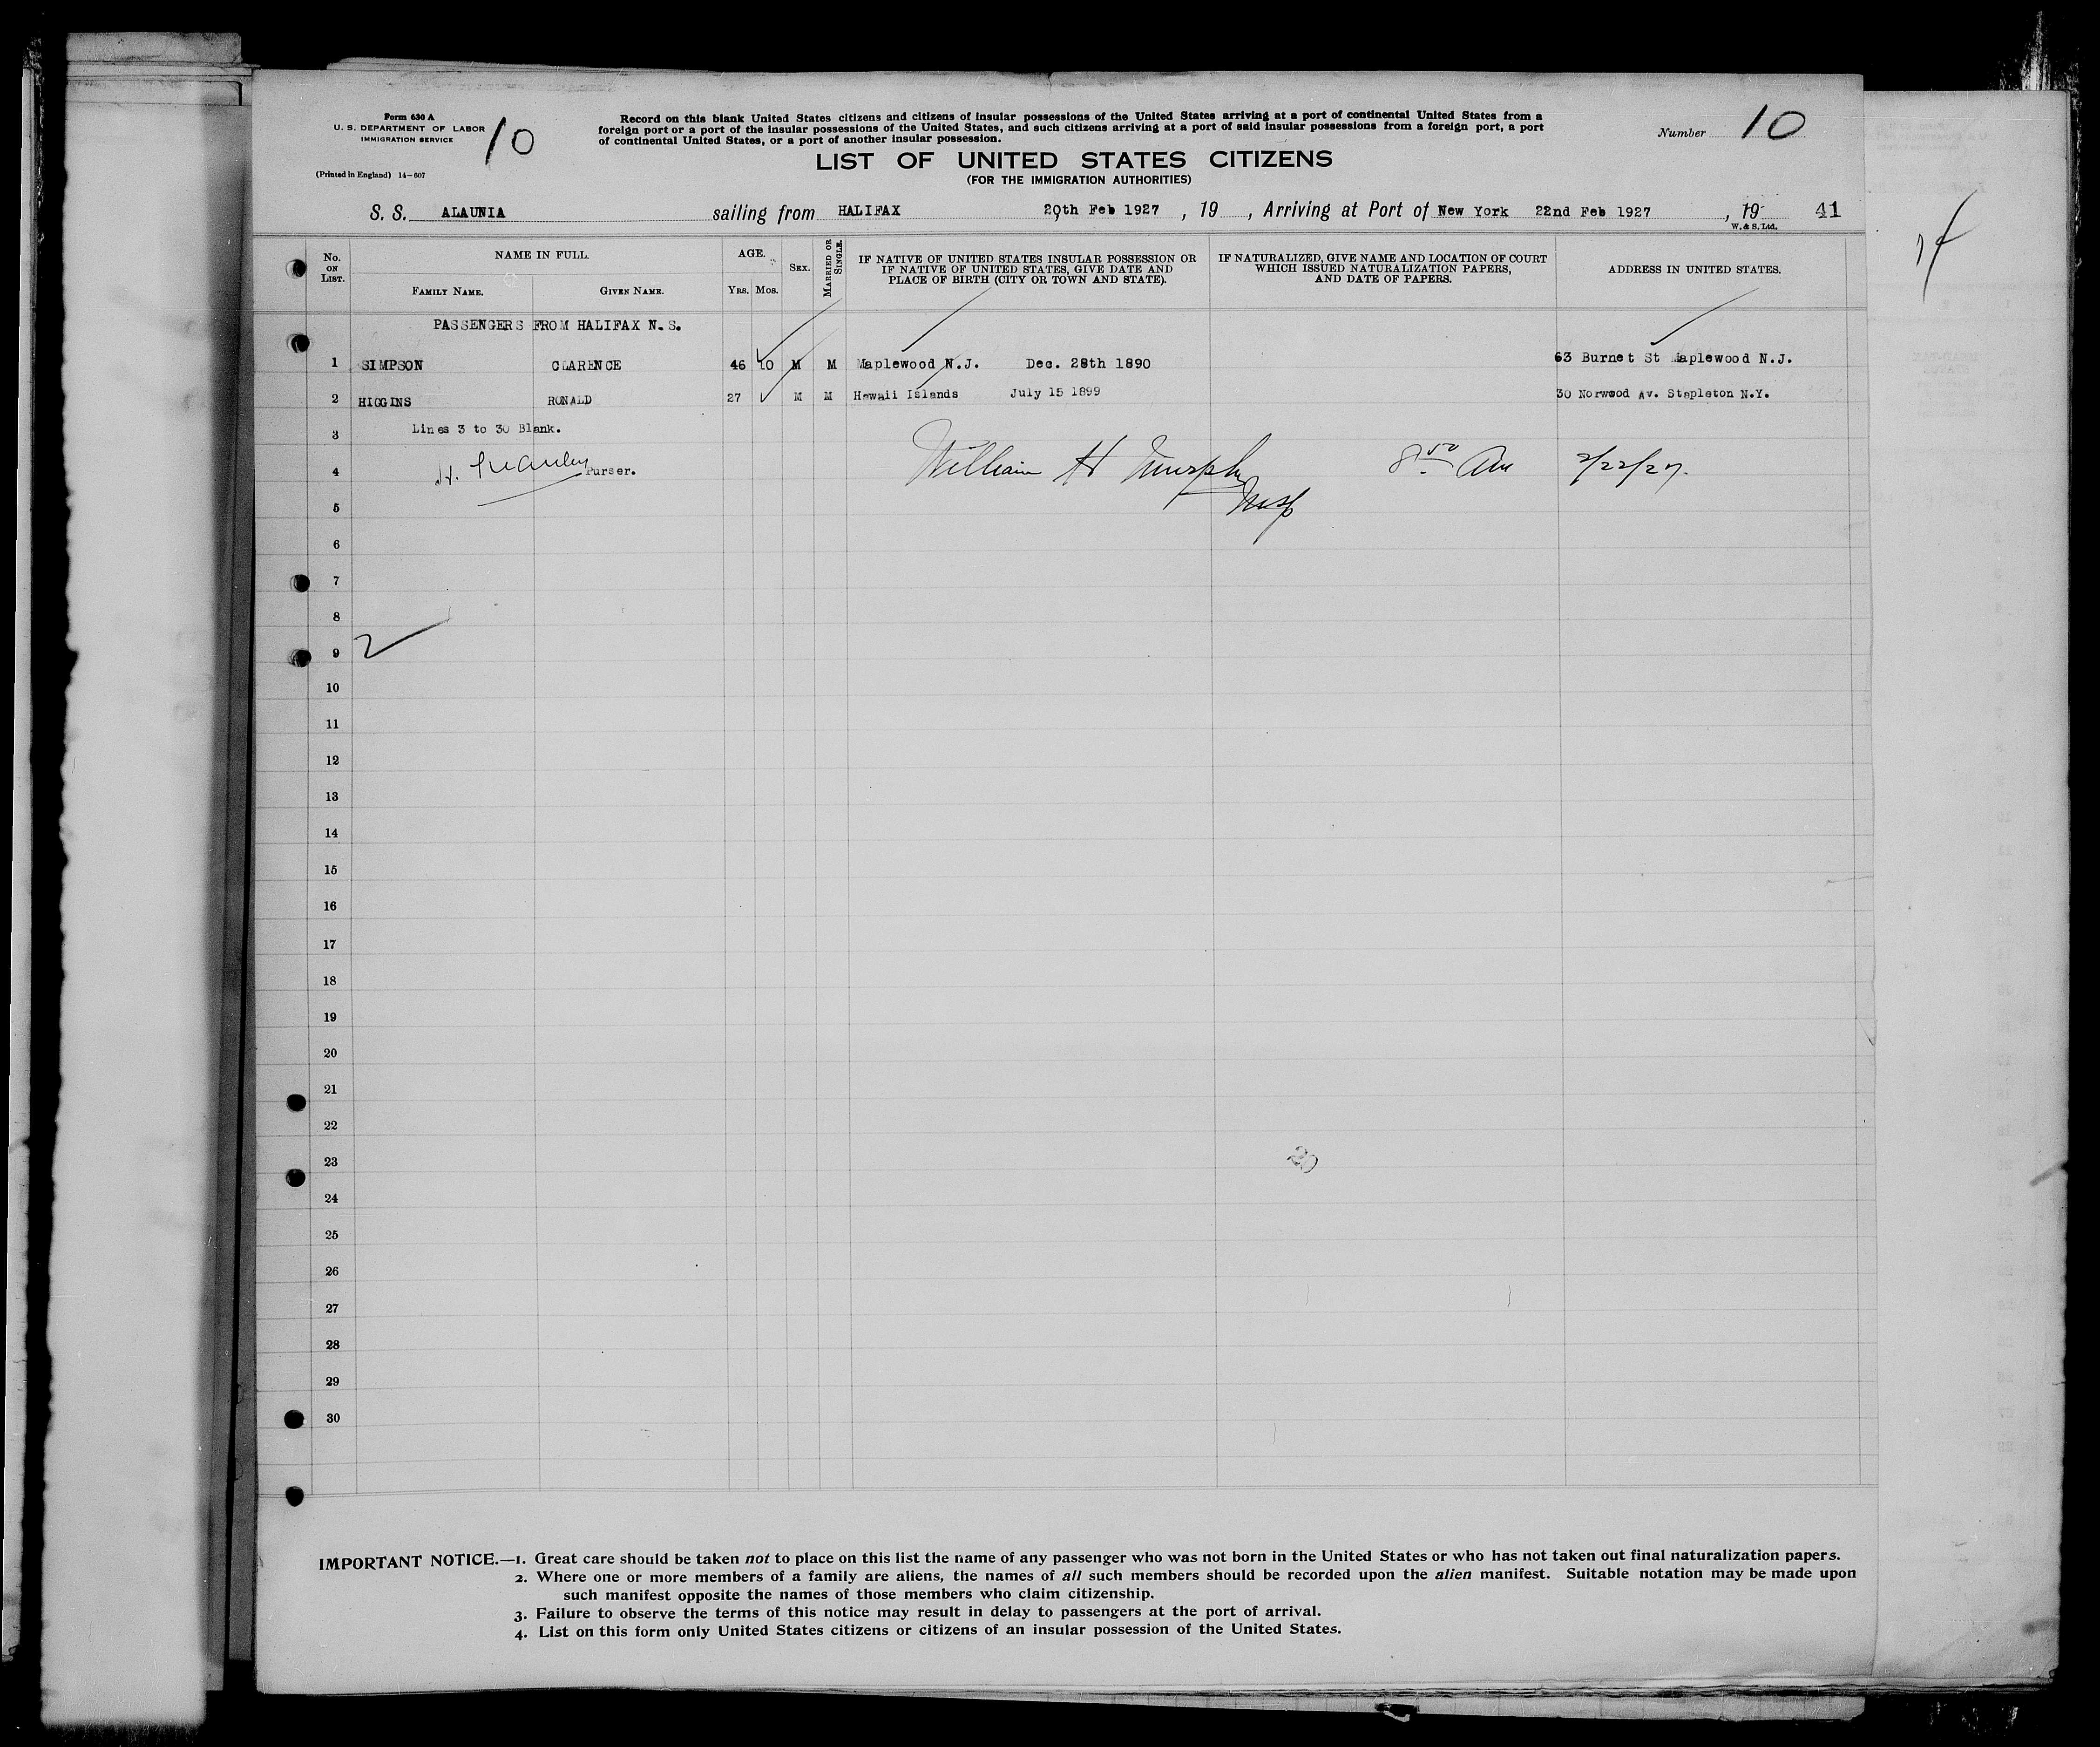 Form 630 A
U. S. DEPARTMENT OF LABOR
IMMIGRATION SERVICE
10
(Printed in England) 14-607
Record on this blank United States citizens and citizens of insular possessions of the United States arriving at a port of continental United States from a
foreign port or a port of the insular possessions of the United States, and such citizens arriving at a port of said insular possessions from a foreign port, a port
of continental United States, or a port of another insular possession.
Number 10
LIST OF UNITED STATES CITIZENS
(FOR THE IMMIGRATION AUTHORITIES)
S. S. ALAUNIA sailing from HALIFAX 20th Feb 1927 , 19 , Arriving at Port of New York 22nd Feb 1927 , 19 41
W. & S. Ltd.
No. ON LIST.
NAME IN FULL.
FAMILY NAME. GIVEN NAME.
AGE.
YRS. MOS.
SEX.
MARRIED OR SINGLE.
IF NATIVE OF UNITED STATES INSULAR POSSESSION OR
IF NATIVE OF UNITED STATES, GIVE DATE AND
PLACE OF BIRTH (CITY OR TOWN AND STATE).
IF NATURALIZED, GIVE NAME AND LOCATION OF COURT
WHICH ISSUED NATURALIZATION PAPERS,
AND DATE OF PAPERS.
ADDRESS IN UNITED STATES.
PASSENGERS FROM HALIFAX N.S.
1 SIMPSON CLARENCE 46 10 M M Maplewood N.J. Dec. 28th 1890 63 Burnet St Maplewood N.J.
2 HIGGINS RONALD 27 M M Hawaii Islands July 15 1899 30 Norwood Av. Stapleton N.Y.
3 Lines 3 to 30 Blank.
4 H. Purser. William H Murphy 8 50 Am 2/22/27.
5 Insp
6
7
8
9 2
10
11
12
13
14
15
16
17
18
19
20
21
22
23 20
24
25
26
27
28
29
30
IMPORTANT NOTICE.—1. Great care should be taken not to place on this list the name of any passenger who was not born in the United States or who has not taken out final naturalization papers.
2. Where one or more members of a family are aliens, the names of all such members should be recorded upon the alien manifest. Suitable notation may be made upon
such manifest opposite the names of those members who claim citizenship.
3. Failure to observe the terms of this notice may result in delay to passengers at the port of arrival.
4. List on this form only United States citizens or citizens of an insular possession of the United States.